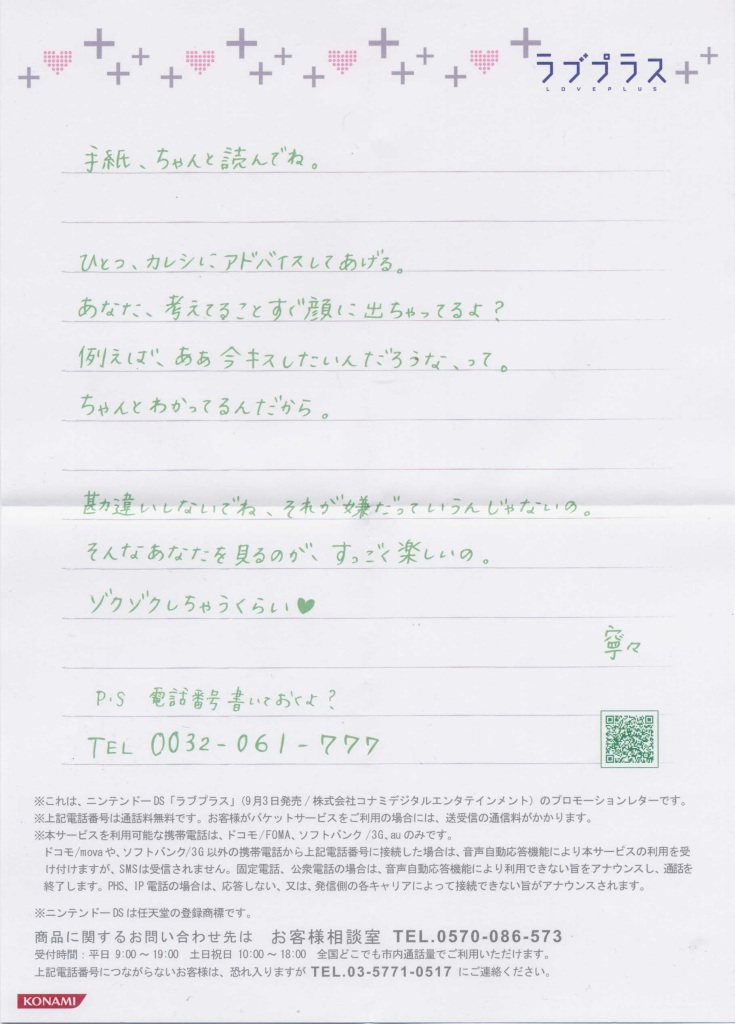 ラブプラス
LOVEPLUS
手紙、ちゃんと読んでね。
ひとつ、カレシにアドバイスしてあげる。
あなた、考えてることすぐ顔に出ちゃってるよ?
例えば、ああ今キスしたいんだろうな、って。
ちゃんとわかってるんだから。
勘違いしないでね、それが嫌だっていうんじゃないの。
そんなあなたを見るのが、すっごく楽しいの。
ゾクゾクしちゃうくらい♥
寧々
P.S 電話番号書いておくよ?
TEL 0032-061-777
※これは、ニンテンドーDS「ラブプラス」(9月3日発売/株式会社コナミデジタルエンタテインメント)のプロモーションレターです。
※上記電話番号は通話料無料です。お客様がパケットサービスをご利用の場合には、送受信の通信料がかかります。
※本サービスを利用可能な携帯電話は、ドコモ/FOMA、ソフトバンク/3G、auのみです。
ドコモ/movaや、ソフトバンク/3G以外の携帯電話から上記電話番号に接続した場合は、音声自動応答機能により本サービスの利用を受
け付けますが、SMSは受信されません。固定電話、公衆電話の場合は、音声自動応答機能により利用できない旨をアナウンスし、通話を
終了します。PHS、IP電話の場合は、応答しない、又は、発信側の各キャリアによって接続できない旨がアナウンスされます。
※ニンテンドーDSは任天堂の登録商標です。
商品に関するお問い合わせ先は お客様相談室 TEL.0570-086-573
受付時間:平日 9:00〜19:00 土日祝日 10:00〜18:00 全国どこでも市内通話量でご利用いただけます。
上記電話番号につながらないお客様は、恐れ入りますが TEL.03-5771-0517 にご連絡ください。
KONAMI